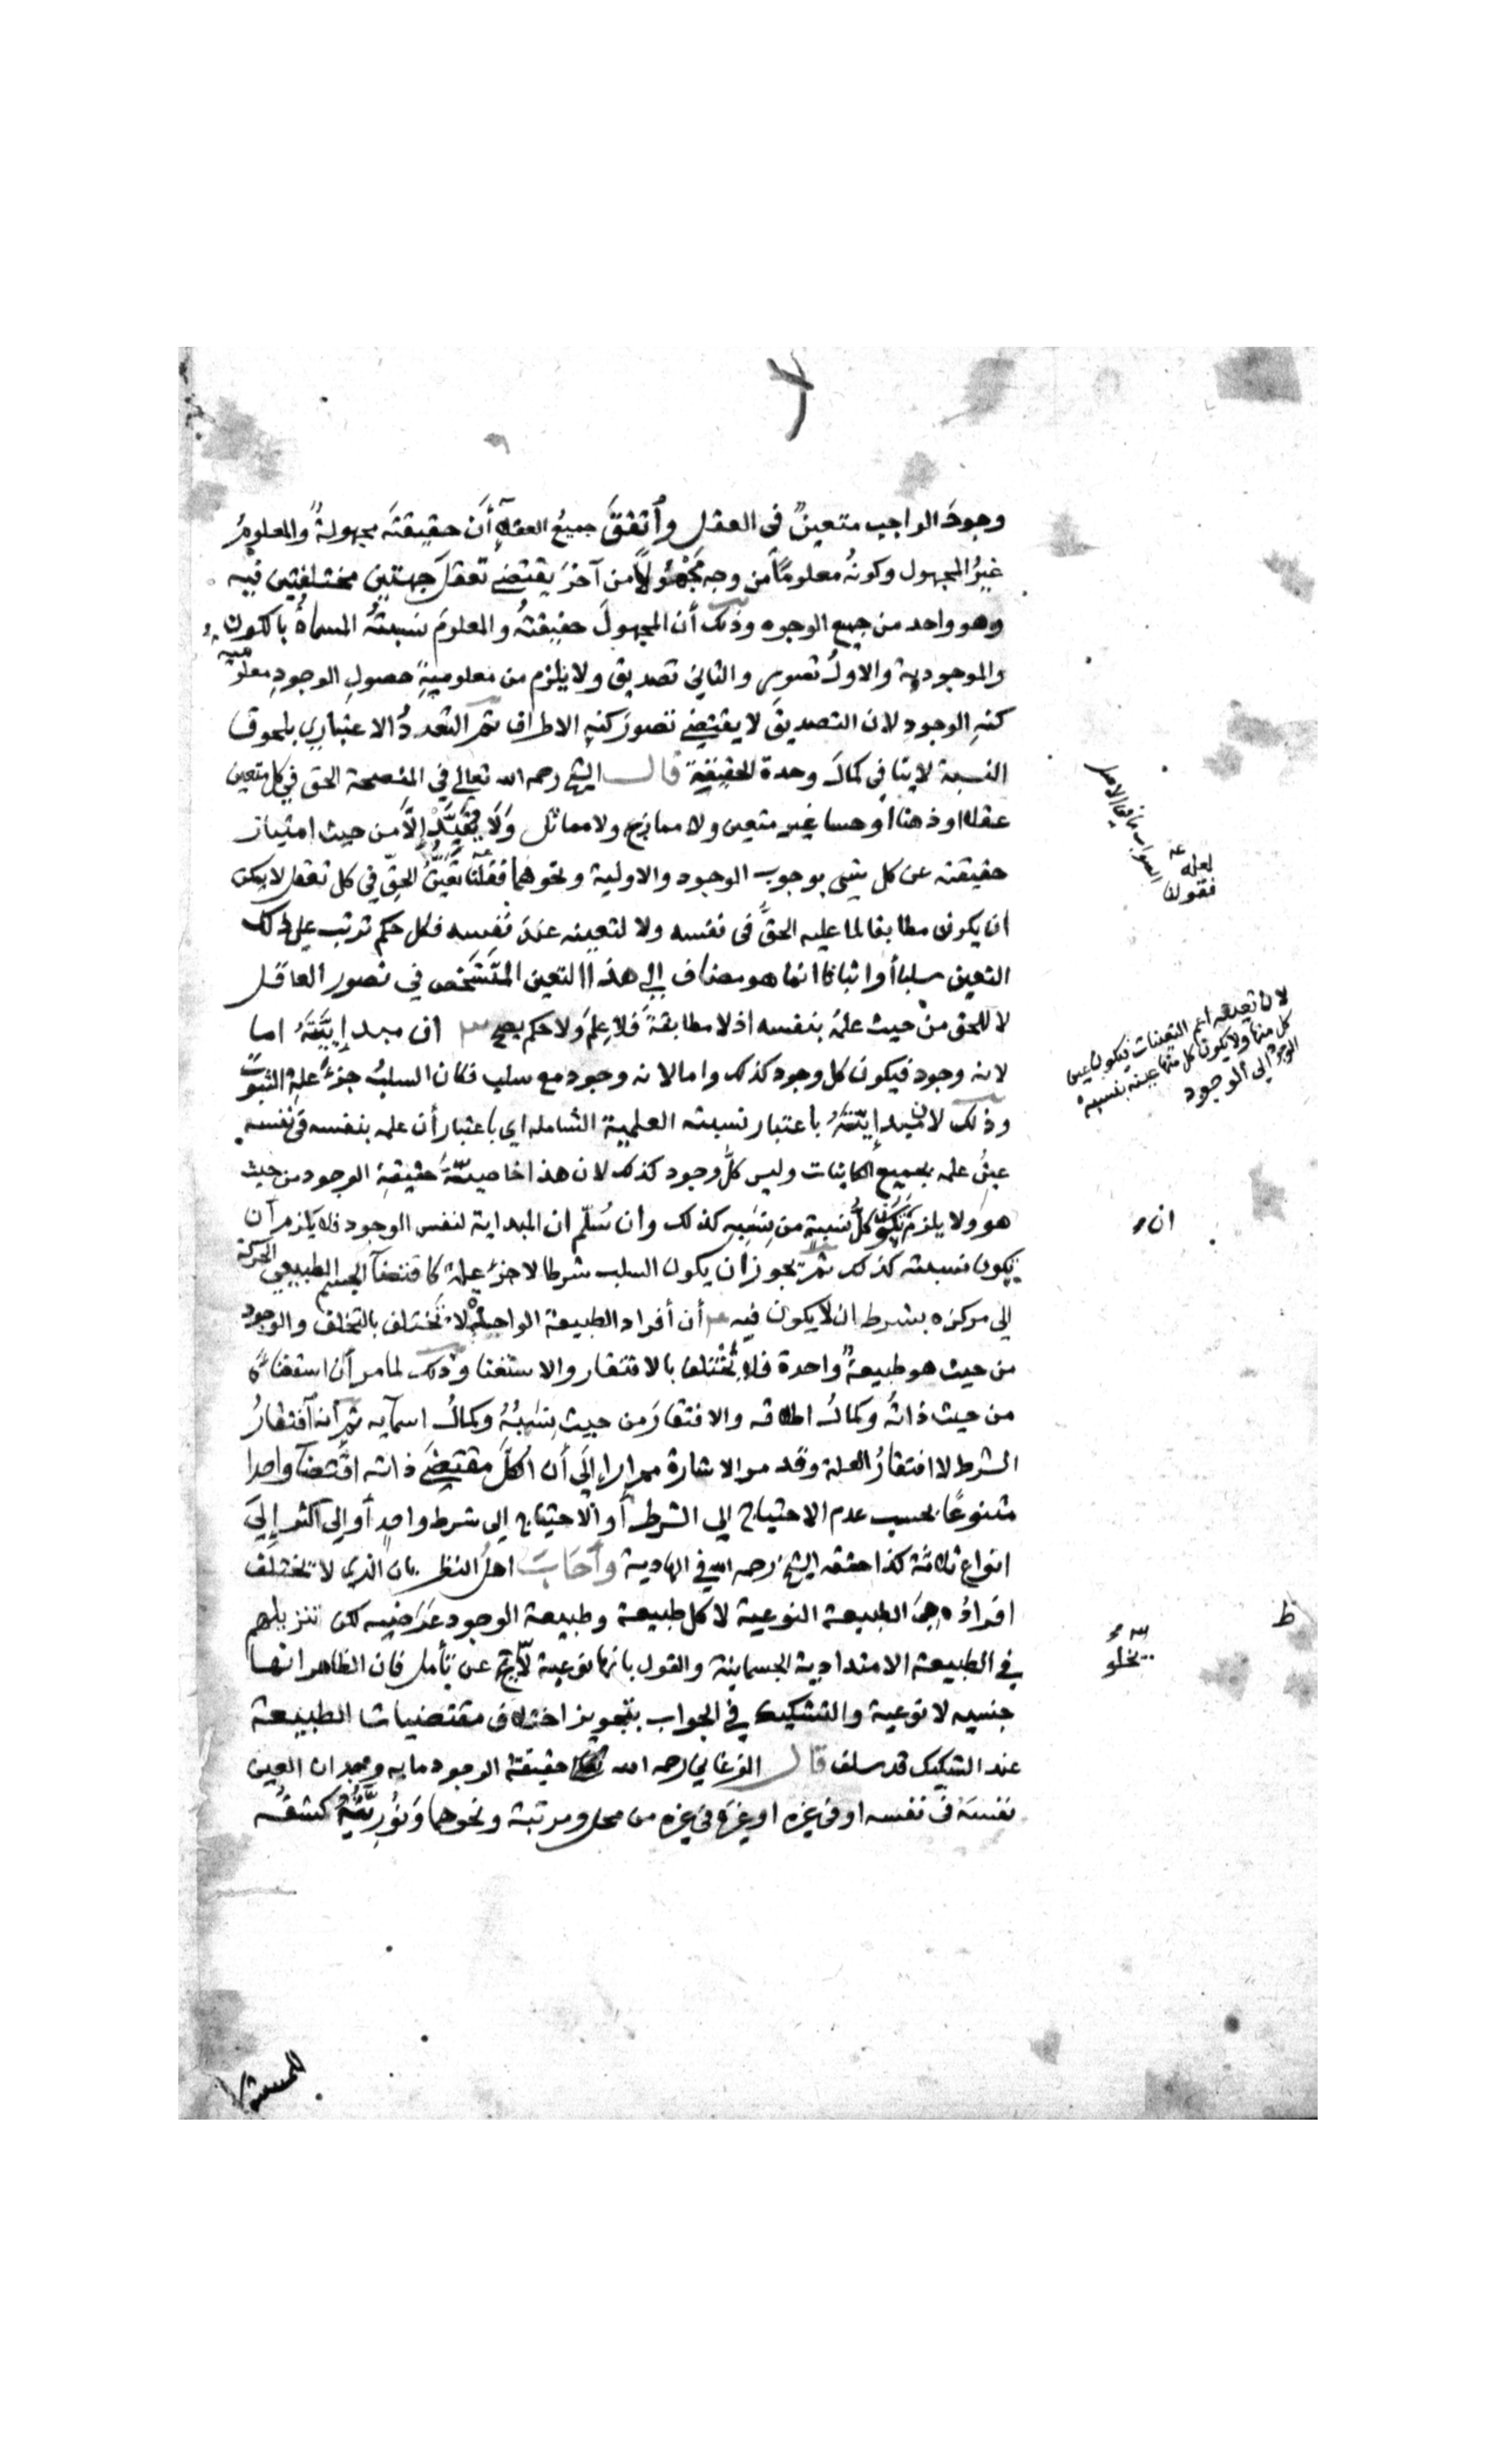 وجودَ الواجب متعينٌ في العقل واتفقَ جميعُ العقلآءِ أنَ حقيقتَه مجهولةٌ والمعلومُ
غيرُ المجهول وكونُه معلومًا من وجه مجهولًا من آخرَ يقتضي تعقلَ جهتين مختلفتين فيه
وهو واحد من جميع الوجوه وذلك أن المجهولَ حقيقتُه والمعلومَ نسبتُه المسماةُ بالكون
والموجودية والاولُ تصور والثاني تصديق ولا يلزم من معلوميةِ حصولِ الوجودِ معلومية
كنهِ الوجودِ لان التصديقَ لا يقتضي تصورَ كنهِ الاطراف ثم التعددُ الاعتباري بلحوق
النسبة لا ينافي كمالَ وحدة الحقيقة قال الشيخ رحمه الله تعالى في المفصحة الحق في كل متعين
عقلا او ذهنا أو حسا غير متعين ولا ممازج ولا مماثل وَلَا مقيَّدٌ إلَّا من حيث امتياز
حقيقته عن كل شيء بوجوب الوجود والاولية ونحوهما فقلنا تعيّنُ الحقّ في كل تعقل لا يمكن
ان يكون مطابقا لما عليه الحقُّ في نفسه ولا لتعينه عندَ نفسه فكل حكم ترتب على ذلك
التعين سلبا أو اثباتا انما هو مضاف إلى هذا التعين المتشخص في تصور العاقل
لا للحق من حيث علمُه بنفسه اذ لا مطابقةَ فلا عِلمَ ولا حكم يصح ان مبدإيَّتَهُ اما
لانه وجود فيكون كل وجود كذلك واما لانه وجود مع سلب فكان السلبُ جزءَ علةِ الثبوت
وذلك لان مبدإيّتَهُ باعتبار نسبته العلمية الشاملة اي باعتبار أن علمه بنفسه في نفسه
عينُ علمه بجميع الكاينات وليس كلُّ وجود كذلك لان هذا خاصيّةُ حقيقةِ الوجود من حيث
هو ولا يلزم كونُ كلّ نسبة من نِسَبِه كذلك وان سُلّم ان المبداية لنفس الوجود فلا يلزم أن
يكون نسبته كذلك ثم يجوز أن يكون السلب شرطا لا جزءَ علة كاقتضآ الجسم الطبيعي الحركة
إلى مركزه بشرط ان لا يكون فيه أن أفراد الطبيعة الواحدة لا تختلف بالتخلف والوجود
من حيث هو طبيعةٌ واحدة فلا تختلف بالافتقار والاستغنا وذلك لما مر أن استغناءَه
من حيث ذاتُه وكمالُ اطلاقه والافتقارَ من حيث نِسَبُهُ وكمالُ اسمآيه ثم أنه افتقارُ
الشرط لا افتقارُ العلة وقد مر الاشارة مرارا إلَى أن الكلَّ مقتضَى ذاته اقتضآً واحدا
متنوعًا بحسب عدم الاحتياج إلى الشرط أو الاحتياج إلى شرط واحدٍ أو إلى أكثر إِلَى
انواع ثلاثة كذا حققه الشيخ رحمه الله في الهادية وأجابَ اهلُ النظر بان الذي لا تختلف
افرادُه هي الطبيعة النوعية لا كل طبيعة وطبيعة الوجود عَرَضيه لكن تنزيلهم
في الطبيعة الامتدادية الجسمانية والقول بانها نوعية لا عن تأمل فان الظاهر انها
جنسيه لا نوعية والتشكيك في الجواب بتجويز اختلاف مقتضيات الطبيعة
عند التشكيك قد سلف قال الفرغاني رحمه الله حقيقة الوجود ما به وجدان العين
نفسَهُ في نفسه او في غيره او غيرَه في غيره من محل ومرتبة ونحوهما وَنُورِيَّتُهُ كشفُه
لعله عه
فنقول
الصواب ما في الاصل
لان تعينه اعم التعينات فيكون عين
كل منها ولا يكون كل منها عينه بنسبة
الوجود إلى الوجود
ان
ظ
يخلو